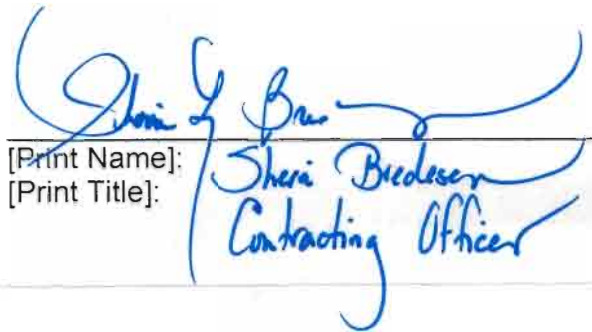 [Print Name]: Sheri Bredesen
[Print Title]: Contracting Officer